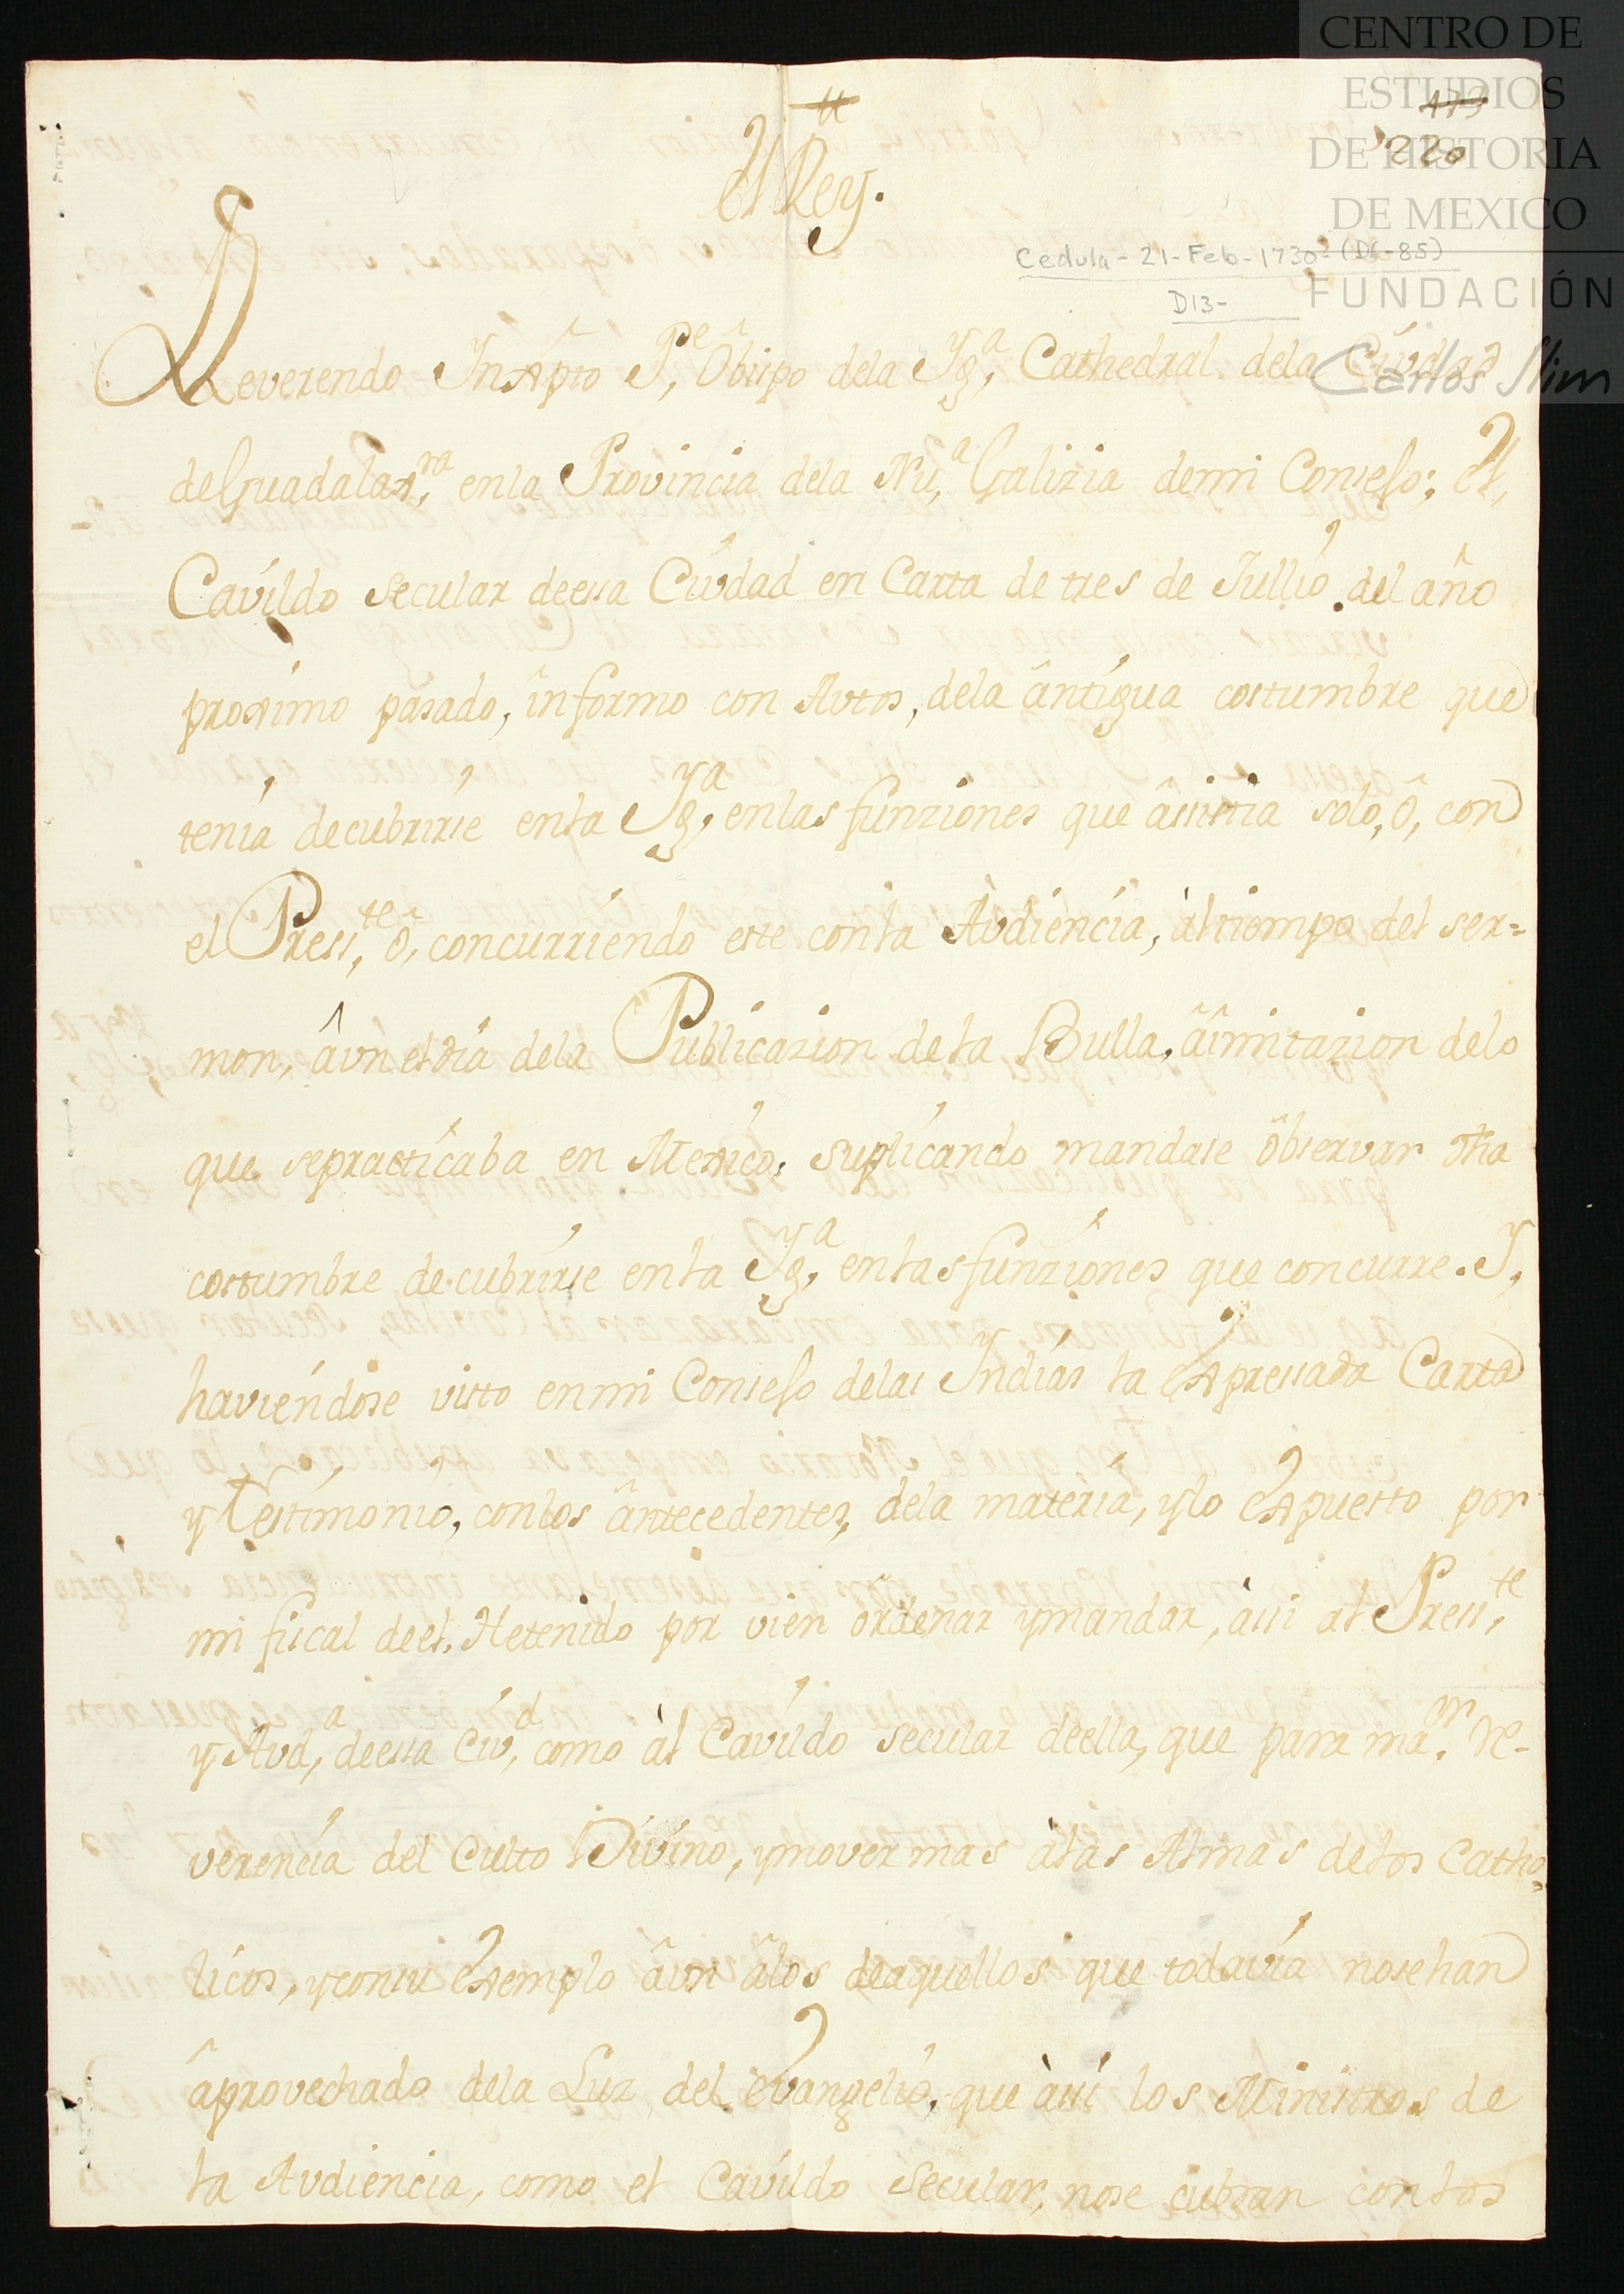 CENTRO DE
ESTUDIOS
DE HISTORIA
DE MEXICO
FUNDACIÓN
Carlos Slim
tt
173
220
el Rey.
Cedula - 21 - Feb - 1730 - (D6-85)
D13-
Reverendo In Xpto Pe, Obispo dela Yga, Cathedral dela Ciudad
de Guadalaxra, en la Provincia dela Nua, Galizia demi Consejo; El,
Cavildo secular de essa Ciudad en Carta de tres de Jullio del año
proximo pasado, informo con Autos, dela antigua costumbre que
tenia decubrirse en la Yga, en las funziones que assistia solo, ô, con
el Presste, ô, concurriendo este con la Audiencia, àl tiempo del ser=
mon, âun el dia dela Publicazion de la Bulla, âimitazion delo
que sepracticaba en Mexico, suplicando mandase ôbservar dha
costumbre de cubrirse en la Yga, en las funziones que concurre. Y,
haviendose visto en mi Consejo delas Indias la expressada Carta
y Testimonio, con los antecedentes, dela materia, ylo expuesto por
mi fiscal de el, He tenido por vien ordenar ymandar, àssi al Presste,
y Auda, de essa Ciud, como àl Cavildo secular de ella, que para mar, re-
verencia del Culto Divino, ymover mas àlas Almas de los Catho,
licos, ycon su exemplo âun âlos de aquellos que todavia nosehan
âprovechado dela Luz del evangelio, que àssi los Ministros de
la Audiencia, como el Cavildo Secular, nose cubran con los